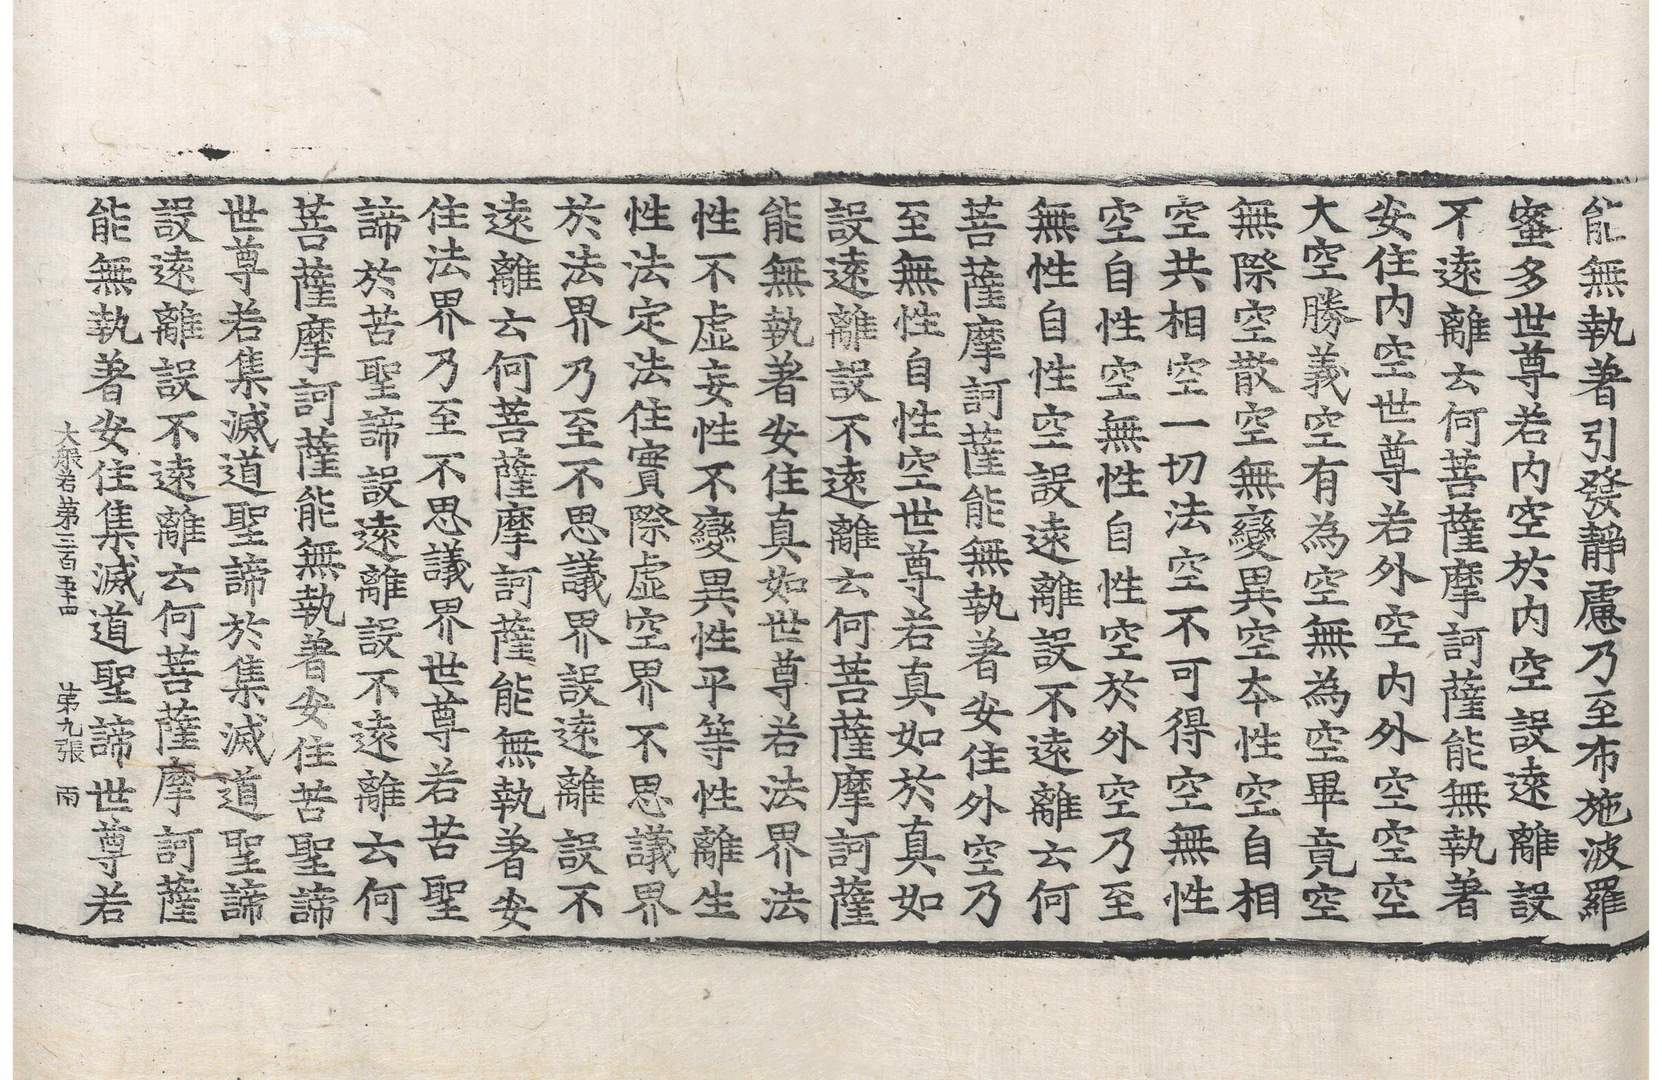 能無執著引發靜慮乃至布施波羅
蜜多世尊若内空於内空設遠離設
不遠離云何菩薩摩訶薩能無執著
安住内空世尊若外空内外空空空
大空勝義空有為空無為空畢竟空
無際空散空無變異空夲性空自相
空共相空一切法空不可得空無性
空自性空無性自性空於外空乃至
無性自性空設遠離設不遠離云何
菩薩摩訶薩能無執著安住外空乃
至無性自性空世尊若真如於真如
設遠離設不遠離云何菩薩摩訶薩
能無執著安住真如世尊若法界法
性不虚妄性不變異性平等性離生
性法定法住實際虚空界不思議界
於法界乃至不思議界設遠離設不
遠離云何菩薩摩訶薩能無執著安
住法界乃至不思議界世尊若苦聖
諦於苦聖諦設遠離設不遠離云何
菩薩摩訶薩能無執著安住苦聖諦
世尊若集滅道聖諦於集滅道聖諦
設遠離設不遠離云何菩薩摩訶薩
能無執著安住集滅道聖諦世尊若
大般若第三百五十四 第九張 雨